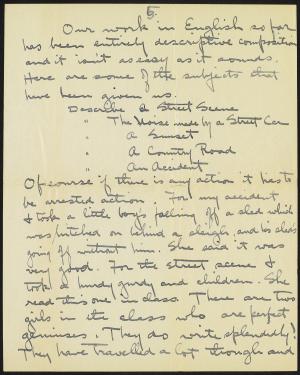 5.
Our work in English so far
has been entirely descriptive composition
and it isn't as easy as it sounds.
Here are some of the subjects that
have been given us.
Describe a Street Scene
" The Noise made by a Street Car
" A Sunset
" A Country Road
" An Accident
Of course if there is any action it has to
be arrested action. For my accident
I took a little boy's falling off a sled which
was hitched on behind a sleigh, and his sled's
going off without him. She said it was
very good. For the street scene I
took a hurdy gurdy and children. She
read this one in class. There are two
girls in the class who are perfect
geniuses. They do write splendidly!
They have travelled a lot though and